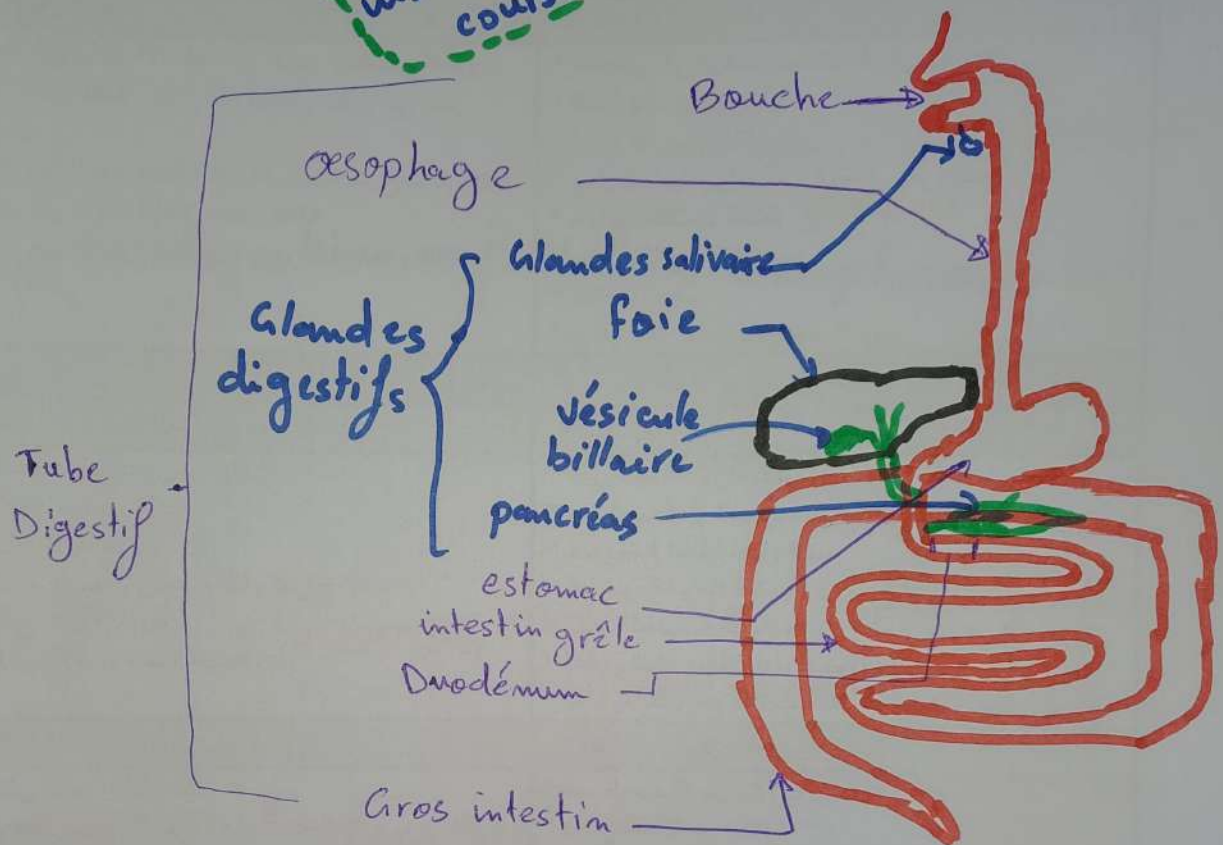 cours
Bouche
œsophage
Glandes salivaire
foie
Glandes
digestifs
vésicule
billaire
pancréas
Tube
Digestif
estomac
intestin grêle
Duodénum
Gros intestin